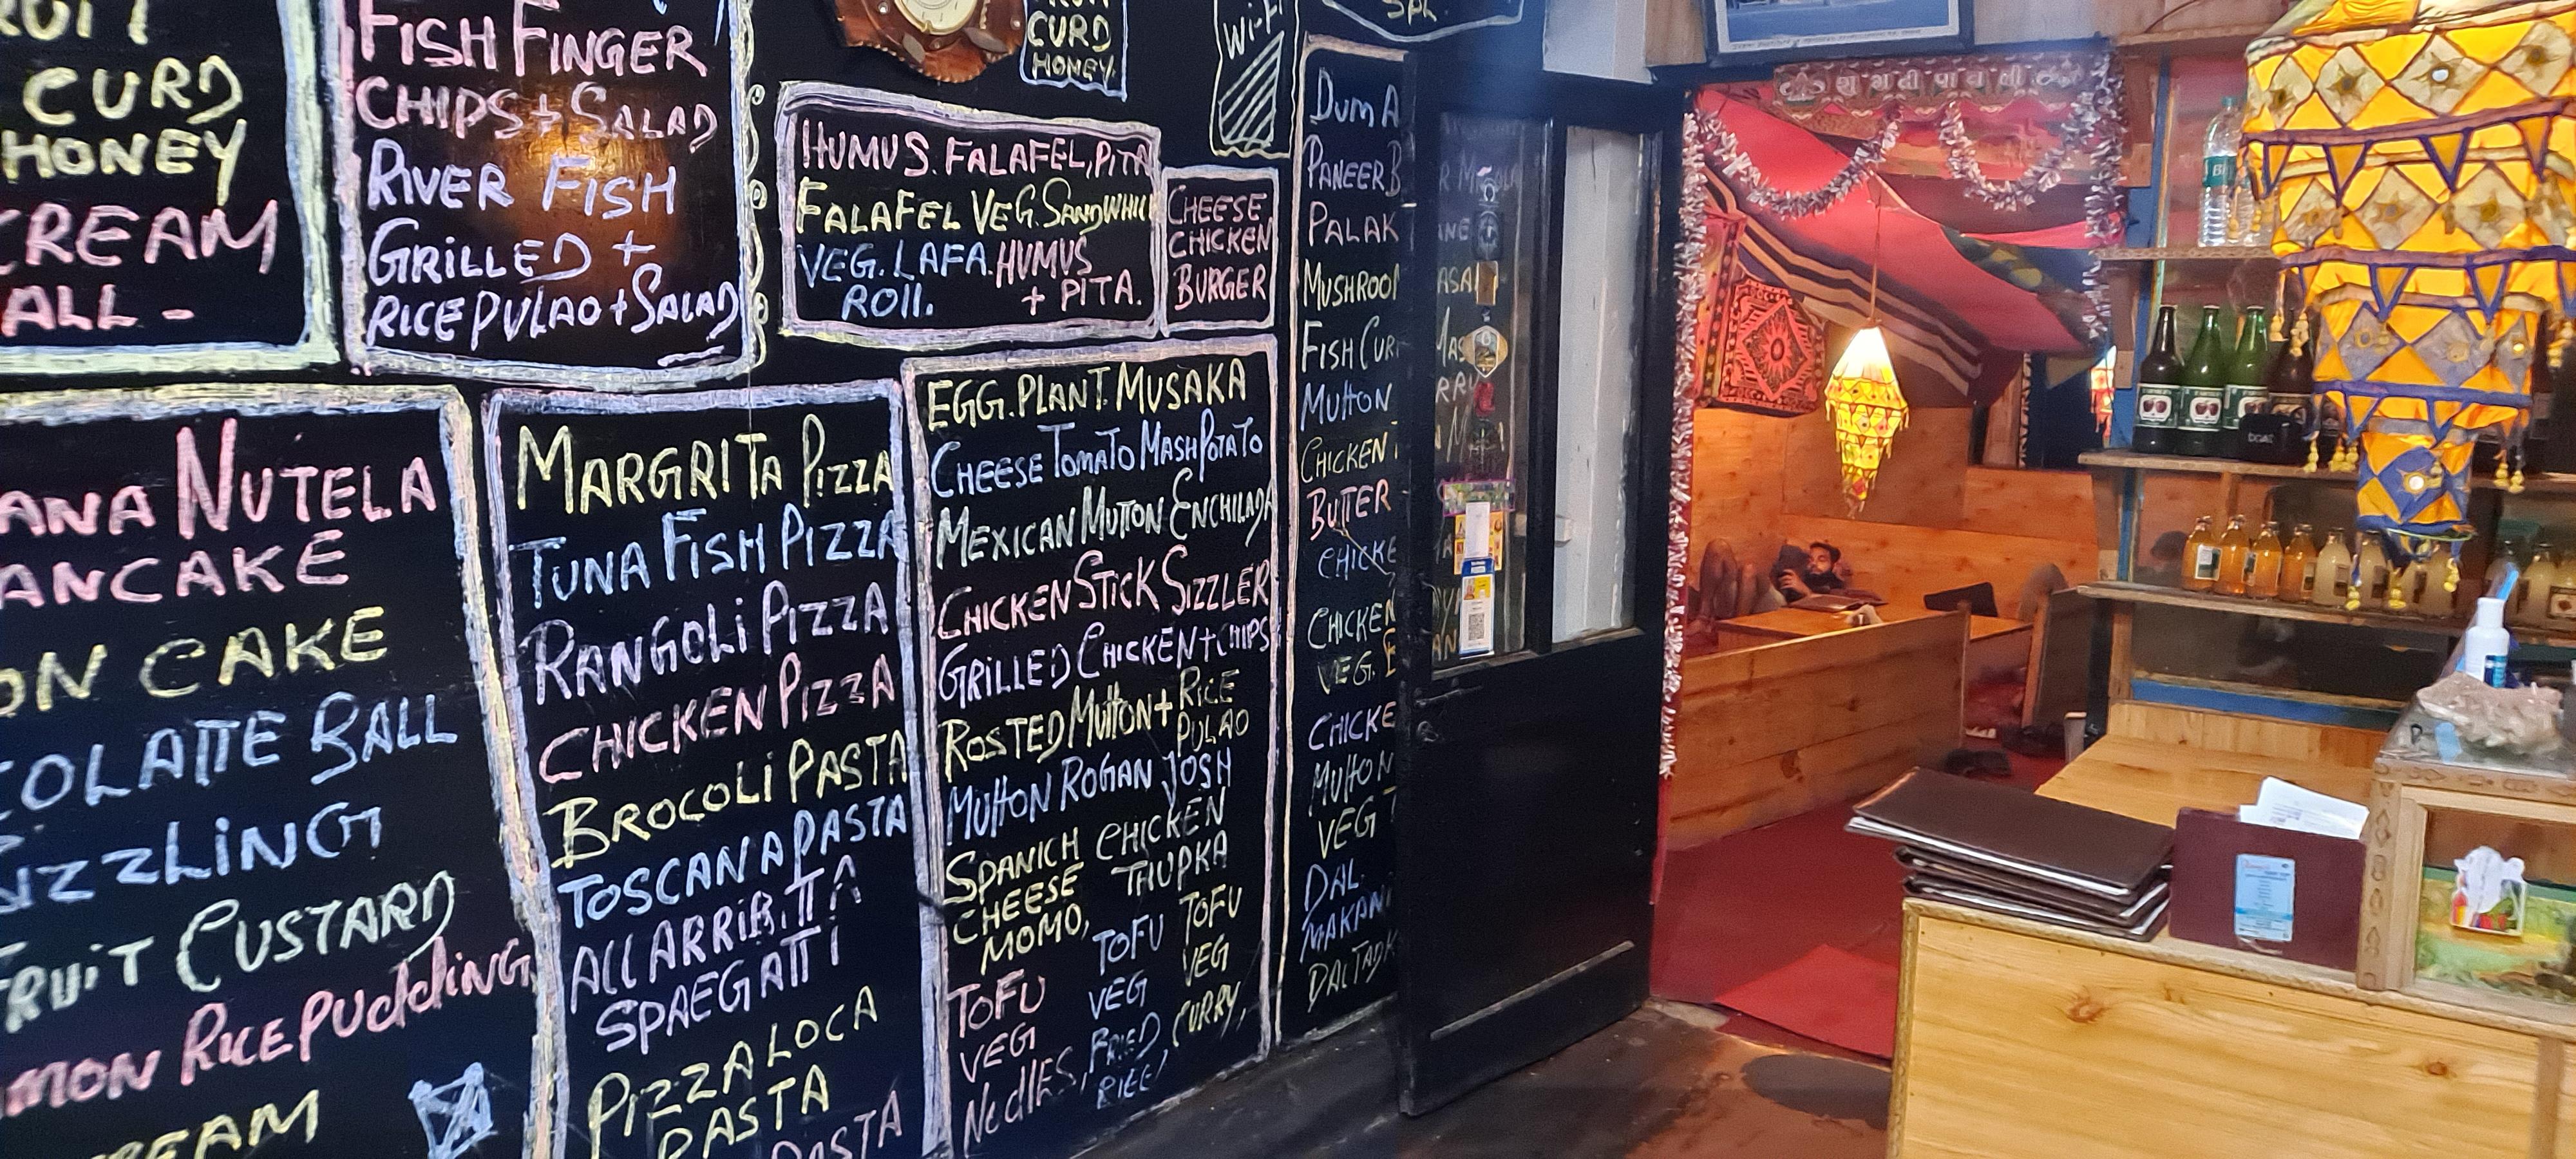 CURD
HONEY
CREAM
ALL -
FISH FINGER
CHIPS + SALAD
RIVER FISH
GRILLED +
RICE PULAO + SALAD
CURD
HONEY
Wi-Fi
SPL.
HUMUS. FALAFEL, PITA
FALAFEL VEG. SANDWHIC
VEG. LAFA. HUMUS
ROLL. + PITA.
CHEESE
CHICKEN
BURGER
ANA NUTELA
ANCAKE
ON CAKE
COLATTE BALL
IZZLING
FRUIT CUSTARD
MON RICE PUDDING
REAM
MARGRITA PIZZA
TUNA FISH PIZZA
RANGOLI PIZZA
CHICKEN PIZZA
BROCOLI PASTA
TOSCANA PASTA
ALL ARRIBITTA
SPAEGATTI
PIZZA LOCA
PASTA
PASTA
EGG. PLANT. MUSAKA
CHEESE TOMATO MASH POTATO
MEXICAN MUTTON ENCHILADA
CHICKEN STICK SIZZLER
GRILLED CHICKEN + CHIPS
ROSTED MUTTON + RICE PULAO
MUTTON ROGAN JOSH
SPANICH CHEESE MOMO, CHICKEN THUPKA
TOFU VEG NUDLES, TOFU VEG FRIED RICE, TOFU VEG CURRY,
DUM A
PANEER B
PALAK
MUSHROOM
FISH CUR
MUTTON
CHICKEN T
BUTTER
CHICKE
CHICKEN
VEG. B
CHICKE
MUTTON
VEG
DAL
MAKANI
DAL TADK
शुभ दीपावली